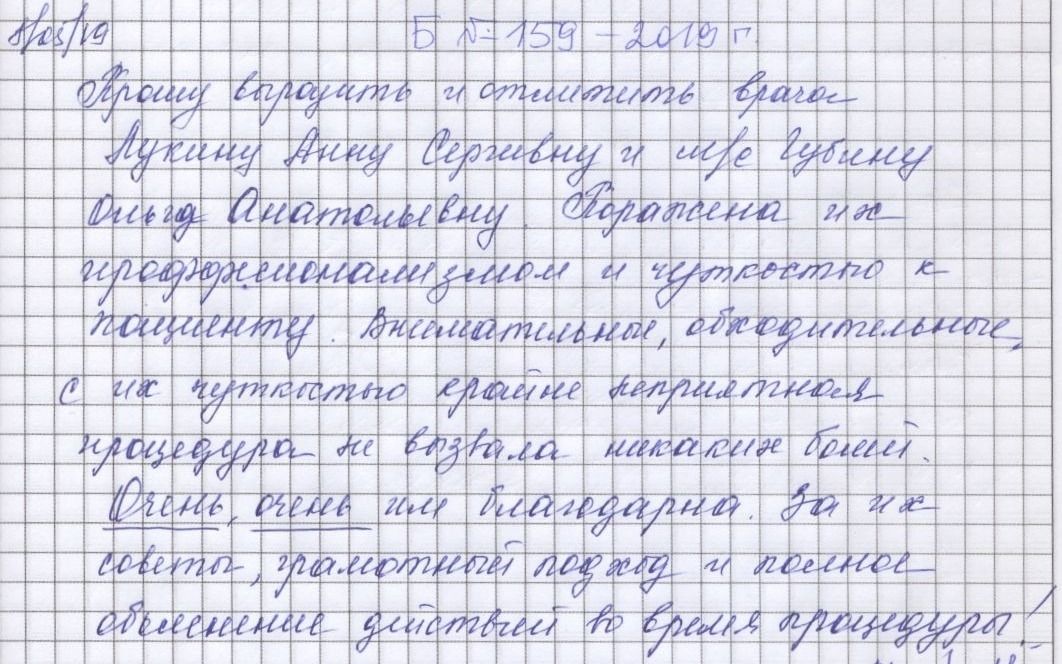 8/05/19 Б № 159 - 2019 г.
Прошу выразить и отметить врача
Лукину Анну Сергеевну и м/с Губину
Ольгу Анатольевну. Поражена их
проффесионализмом и чуткостью к
пациенту. Внимательные, обходительные,
с их чуткостью крайне неприятная
процедура не вызвала никаких болей.
Очень, очень им благодарна. За их
советы, грамотный подход и полное
объяснение действий во время процедуры!